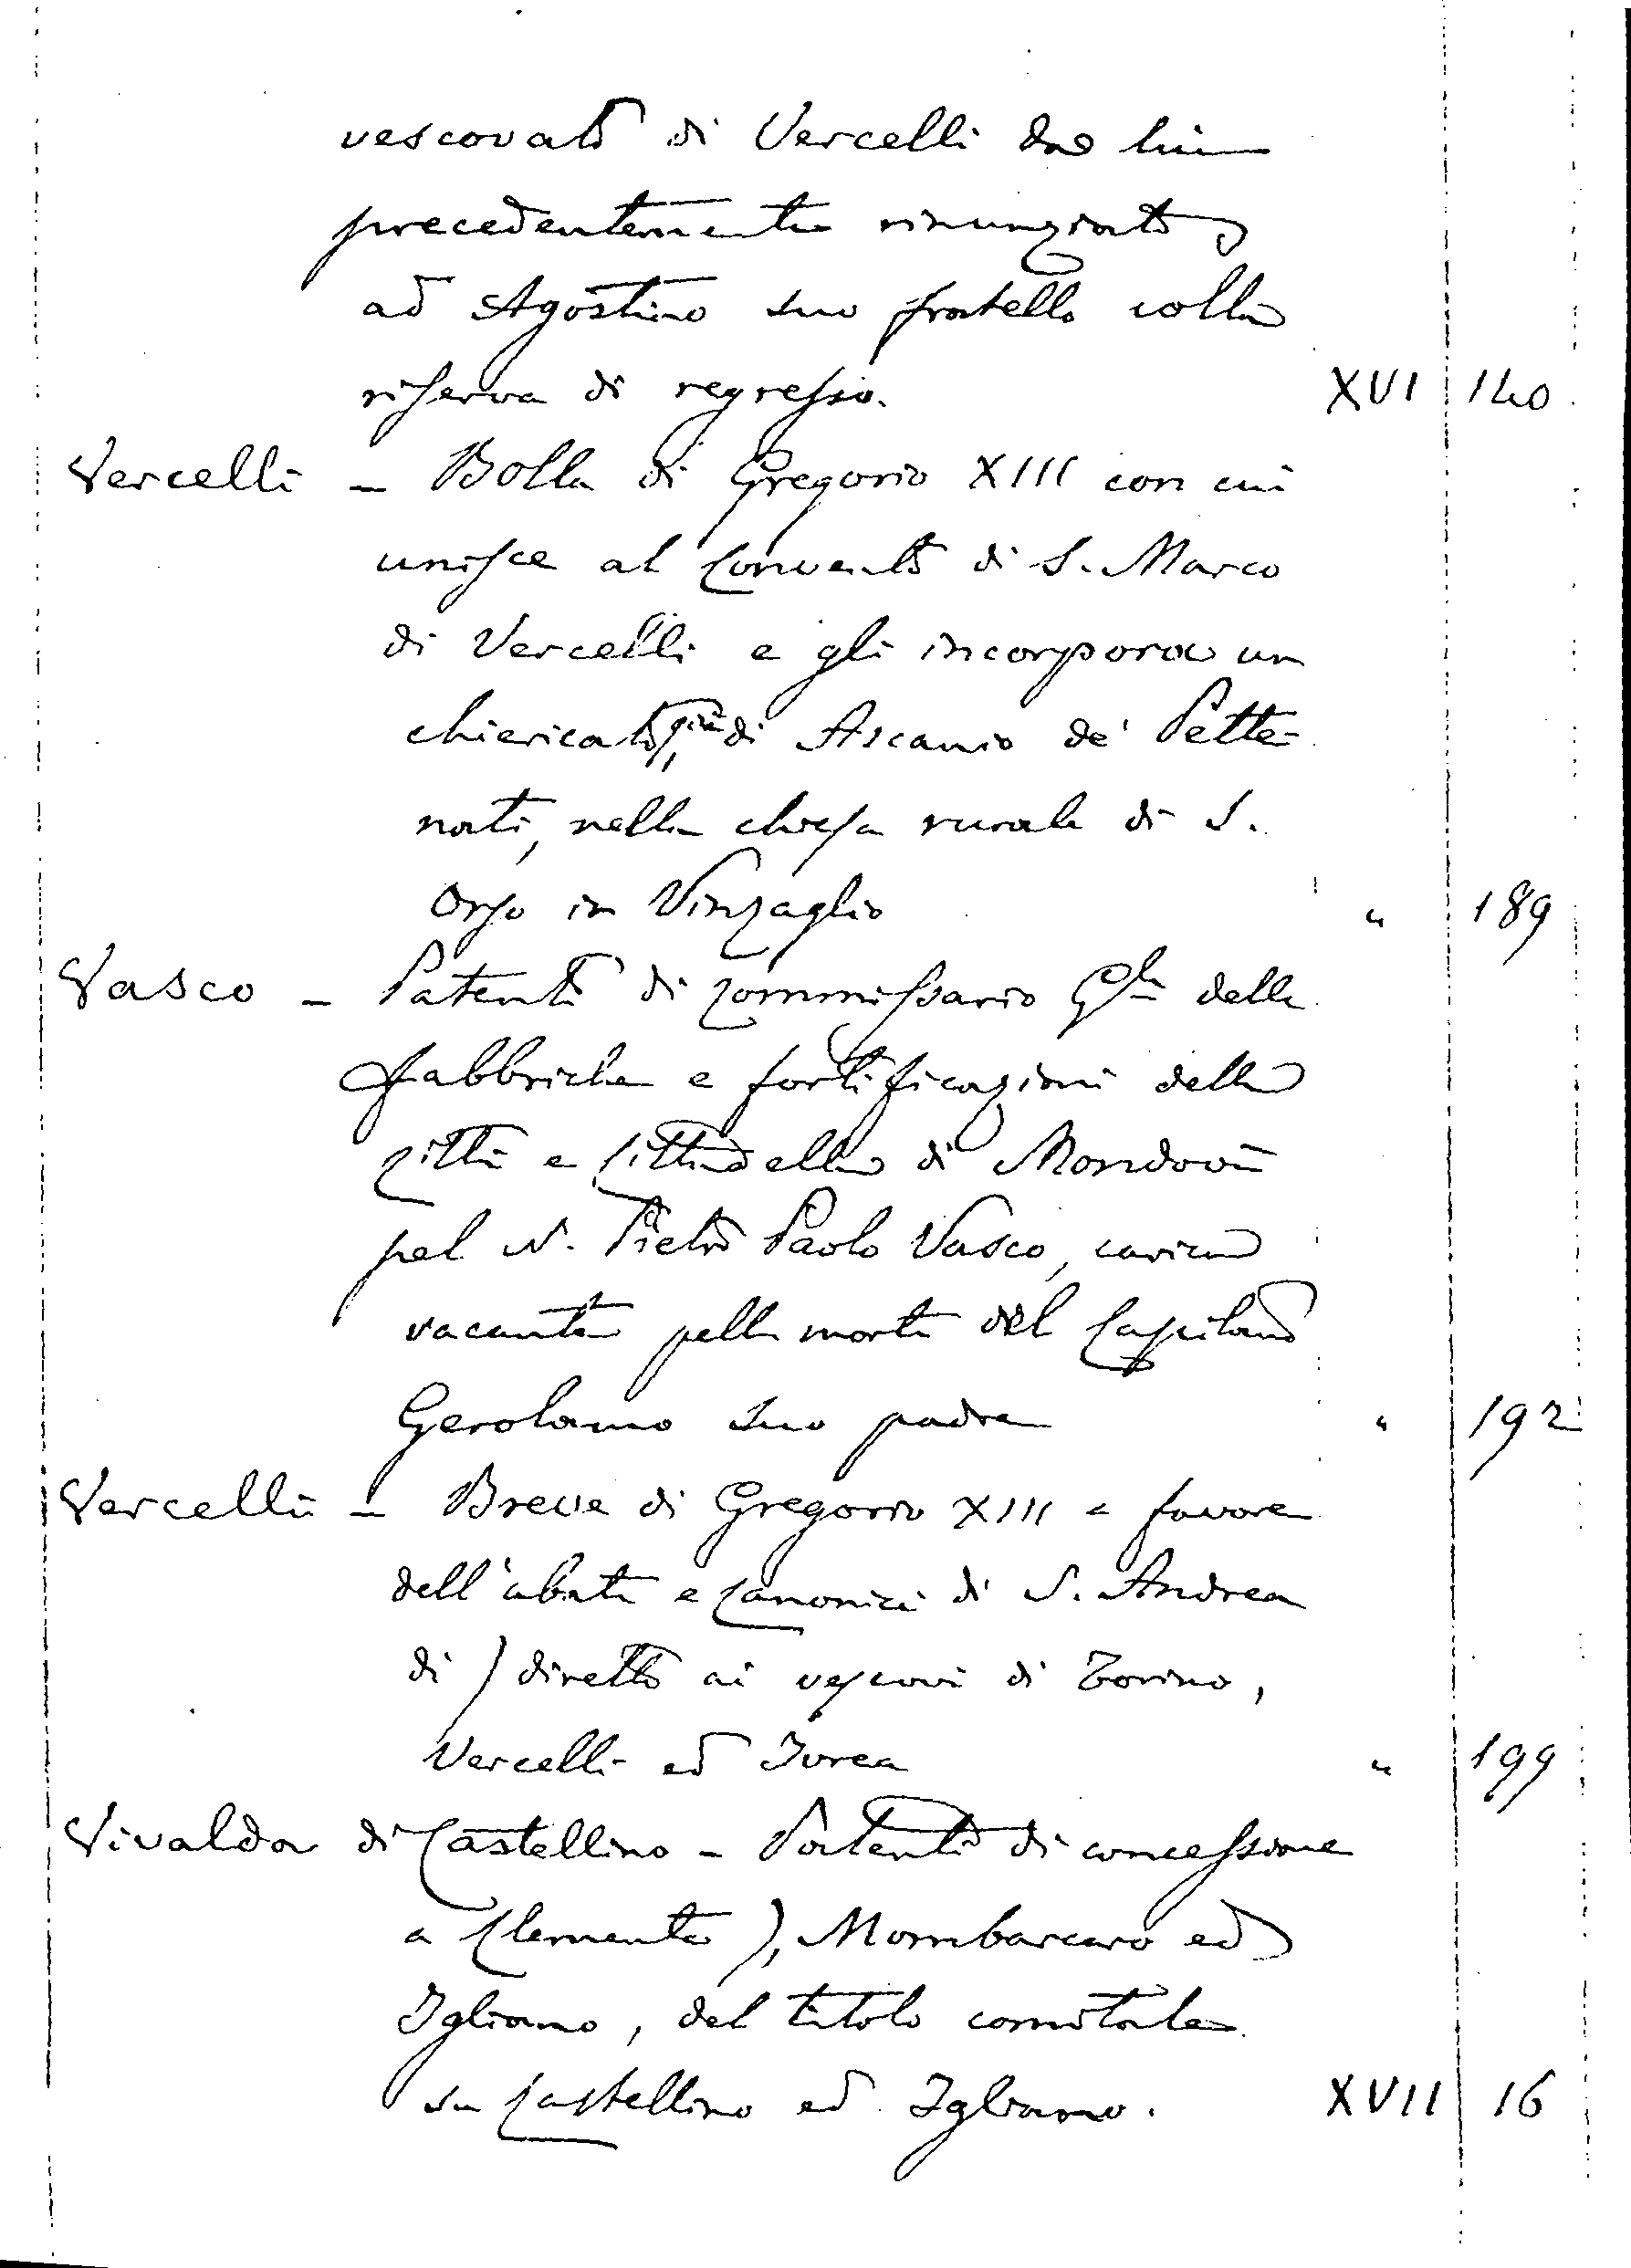 vescovato di Vercelli da lui
precedentemente rinunziato
ad Agostino suo fratello colla
riserva di regresso. XVI 140
Vercelli - Bolla di Gregorio XIII con cui
unisce al Convento di S. Marco
di Vercelli e gli incorpora un
chiericato, già di Ascanio de' Pette-
nati, nella chiesa rurale di S.
Orso in Vinzaglio " 189
Vasco - Patenti di Commissario Gle delle
Fabbriche e fortificazioni della
Città e Cittadella di Mondovì
pel N. Pietro Paolo Vasco, carica
vacante pella morte del Capitano
Gerolamo suo padre " 192
Vercelli - Breve di Gregorio XIII a favore
dell'abate e Canonici di S. Andrea
di ) diretto ai vescovi di Torino,
Vercelli ed Ivrea " 199
Vivalda di Castellino - Patenti di concessione
a Clemente ), Mombarcaro ed
Igliano, del titolo comitale
su Castellino ed Igliano. XVII 16